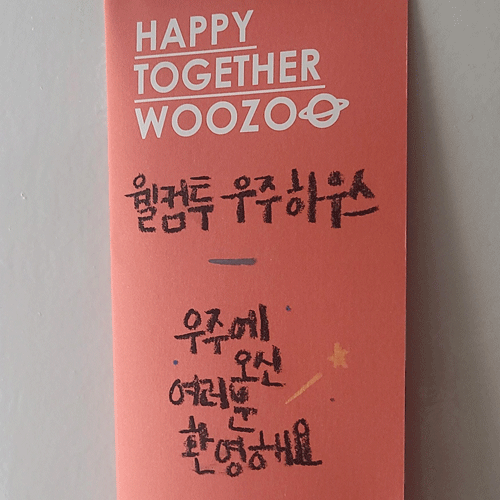 HAPPY
TOGETHER
WOOZOO
웰컴투 우주하우스
우주에
오신
여러분
환영해요